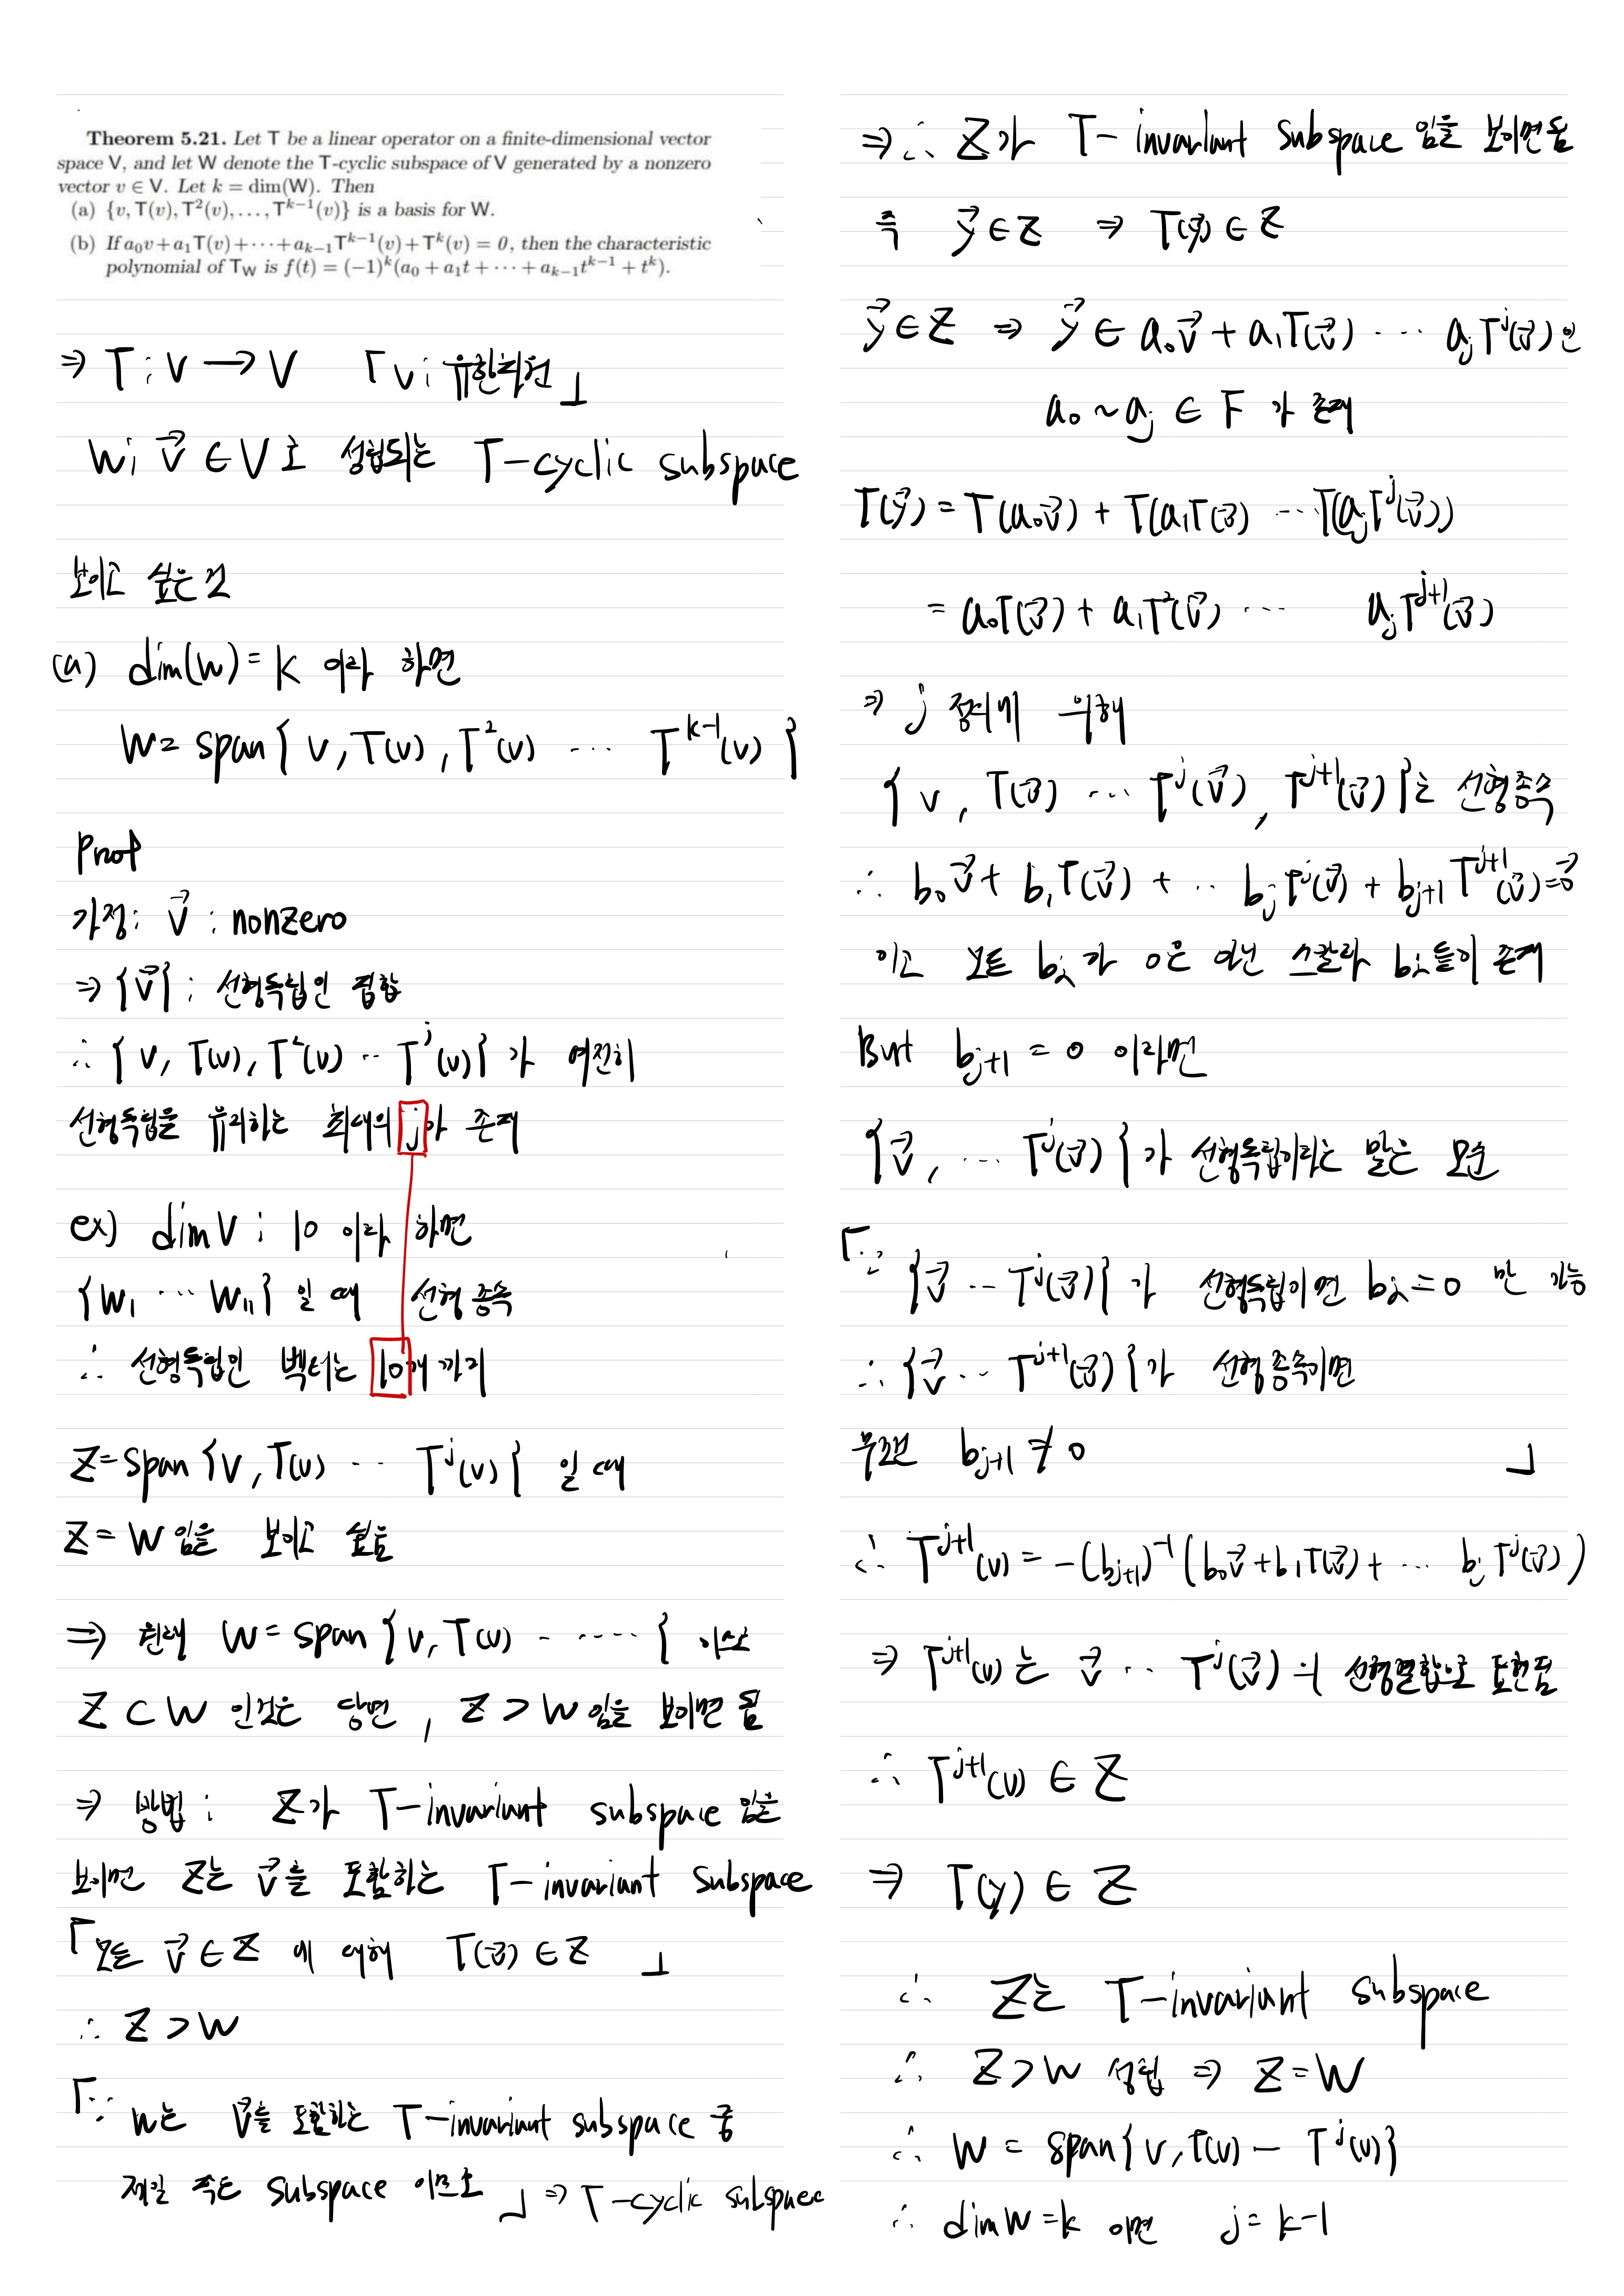 Theorem 5.21. Let T be a linear operator on a finite-dimensional vector
space V, and let W denote the T-cyclic subspace of V generated by a nonzero
vector v ∈ V. Let k = dim(W). Then
(a) {v, T(v), T²(v), ..., Tᵏ⁻¹(v)} is a basis for W.
(b) If a₀v + a₁T(v) + ··· + aₖ₋₁Tᵏ⁻¹(v) + Tᵏ(v) = 0, then the characteristic
polynomial of T_W is f(t) = (−1)ᵏ(a₀ + a₁t + ··· + aₖ₋₁tᵏ⁻¹ + tᵏ).
⇒ T : V → V 「V ; 유한차원」
W ; v⃗ ∈ V로 생성되는 T-cyclic subspace
보이고 싶은 것
(a) dim(W) = k 이라 하면
W = span{ v, T(v), T²(v) ··· Tᵏ⁻¹(v) }
Proof
가정: v⃗ : nonzero
⇒ {v⃗} : 선형독립인 집합
∴ { v, T(v), T²(v) ·· Tʲ(v)} 가 여전히
선형독립을 유지하는 최대의 j가 존재
ex) dim V ; 10 이라 하면
{w₁ ··· w₁₁} 일 때 선형 종속
∴ 선형독립인 벡터는 10개 까지
Z = span {v, T(v) ··· Tʲ(v)} 일 때
Z = W 임을 보이고 싶음
⇒ 원래 W = span {v, T(v) ······ } 이므로
Z ⊂ W 인것은 당연, Z ⊃ W 임을 보이면 됨
⇒ 방법 ; Z가 T-invariant subspace 임을
보이면 Z는 v⃗를 포함하는 T-invariant subspace
「모든 v⃗ ∈ Z 에 대해 T(v⃗) ∈ Z 」
∴ Z ⊃ W
「∵ W는 v⃗를 포함하는 T-invariant subspace 중
제일 작은 subspace 이므로 」 ⇒ T-cyclic subspace
⇒ ∴ Z가 T-invariant subspace 임을 보이면됨
즉 y⃗ ∈ Z ⇒ T(y⃗) ∈ Z
y⃗ ∈ Z ⇒ y⃗ ∈ a₀v⃗ + a₁T(v⃗) ··· aⱼTʲ(v⃗) 인
a₀ ~ aⱼ ∈ F 가 존재
T(y⃗) = T(a₀v⃗) + T(a₁T(v⃗) ··· T(aⱼTʲ(v⃗))
= a₀T(v⃗) + a₁T²(v⃗) ··· aⱼTʲ⁺¹(v⃗)
⇒ j 정의에 의해
{ v, T(v⃗) ··· Tʲ(v⃗), Tʲ⁺¹(v⃗) }는 선형종속
∴ b₀v⃗ + b₁T(v⃗) + ·· bⱼTʲ(v⃗) + bⱼ₊₁Tʲ⁺¹(v⃗) = 0⃗
이고 모든 bᵢ가 0은 아닌 스칼라 bᵢ들이 존재
But bⱼ₊₁ = 0 이라면
{v⃗, ··· Tʲ(v⃗) } 가 선형독립이라는 말은 모순
「∵ {v⃗ ·· Tʲ(v⃗)} 가 선형독립이면 bᵢ = 0 만 가능
∴ {v⃗ ·· Tʲ⁺¹(v⃗) } 가 선형 종속이면
무조건 bⱼ₊₁ ≠ 0 」
∴ Tʲ⁺¹(v) = −(bⱼ₊₁)⁻¹(b₀v⃗ + b₁T(v⃗) + ··· bⱼTʲ(v⃗))
⇒ Tʲ⁺¹(v)는 v⃗ ·· Tʲ(v⃗) 의 선형결합으로 표현됨
∴ Tʲ⁺¹(v) ∈ Z
⇒ T(y) ∈ Z
∴ Z는 T-invariant subspace
∴ Z ⊃ W 성립 ⇒ Z = W
∴ W = span{v, T(v) − Tʲ(v)}
∴ dim W = k 이면 j = k−1